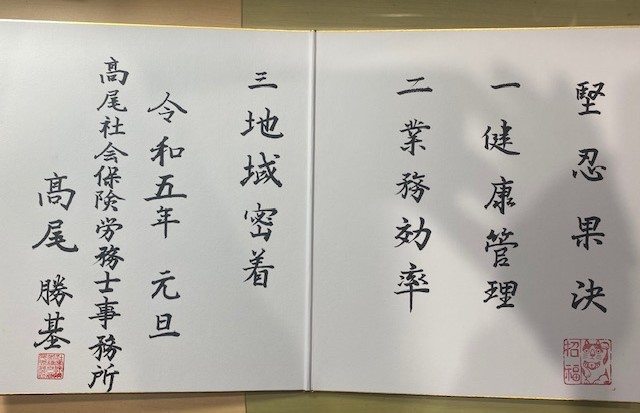 堅忍果決
一 健康管理
二 業務効率
三 地域密着
令和五年 元旦
髙尾社会保険労務士事務所
髙尾 勝基
招福